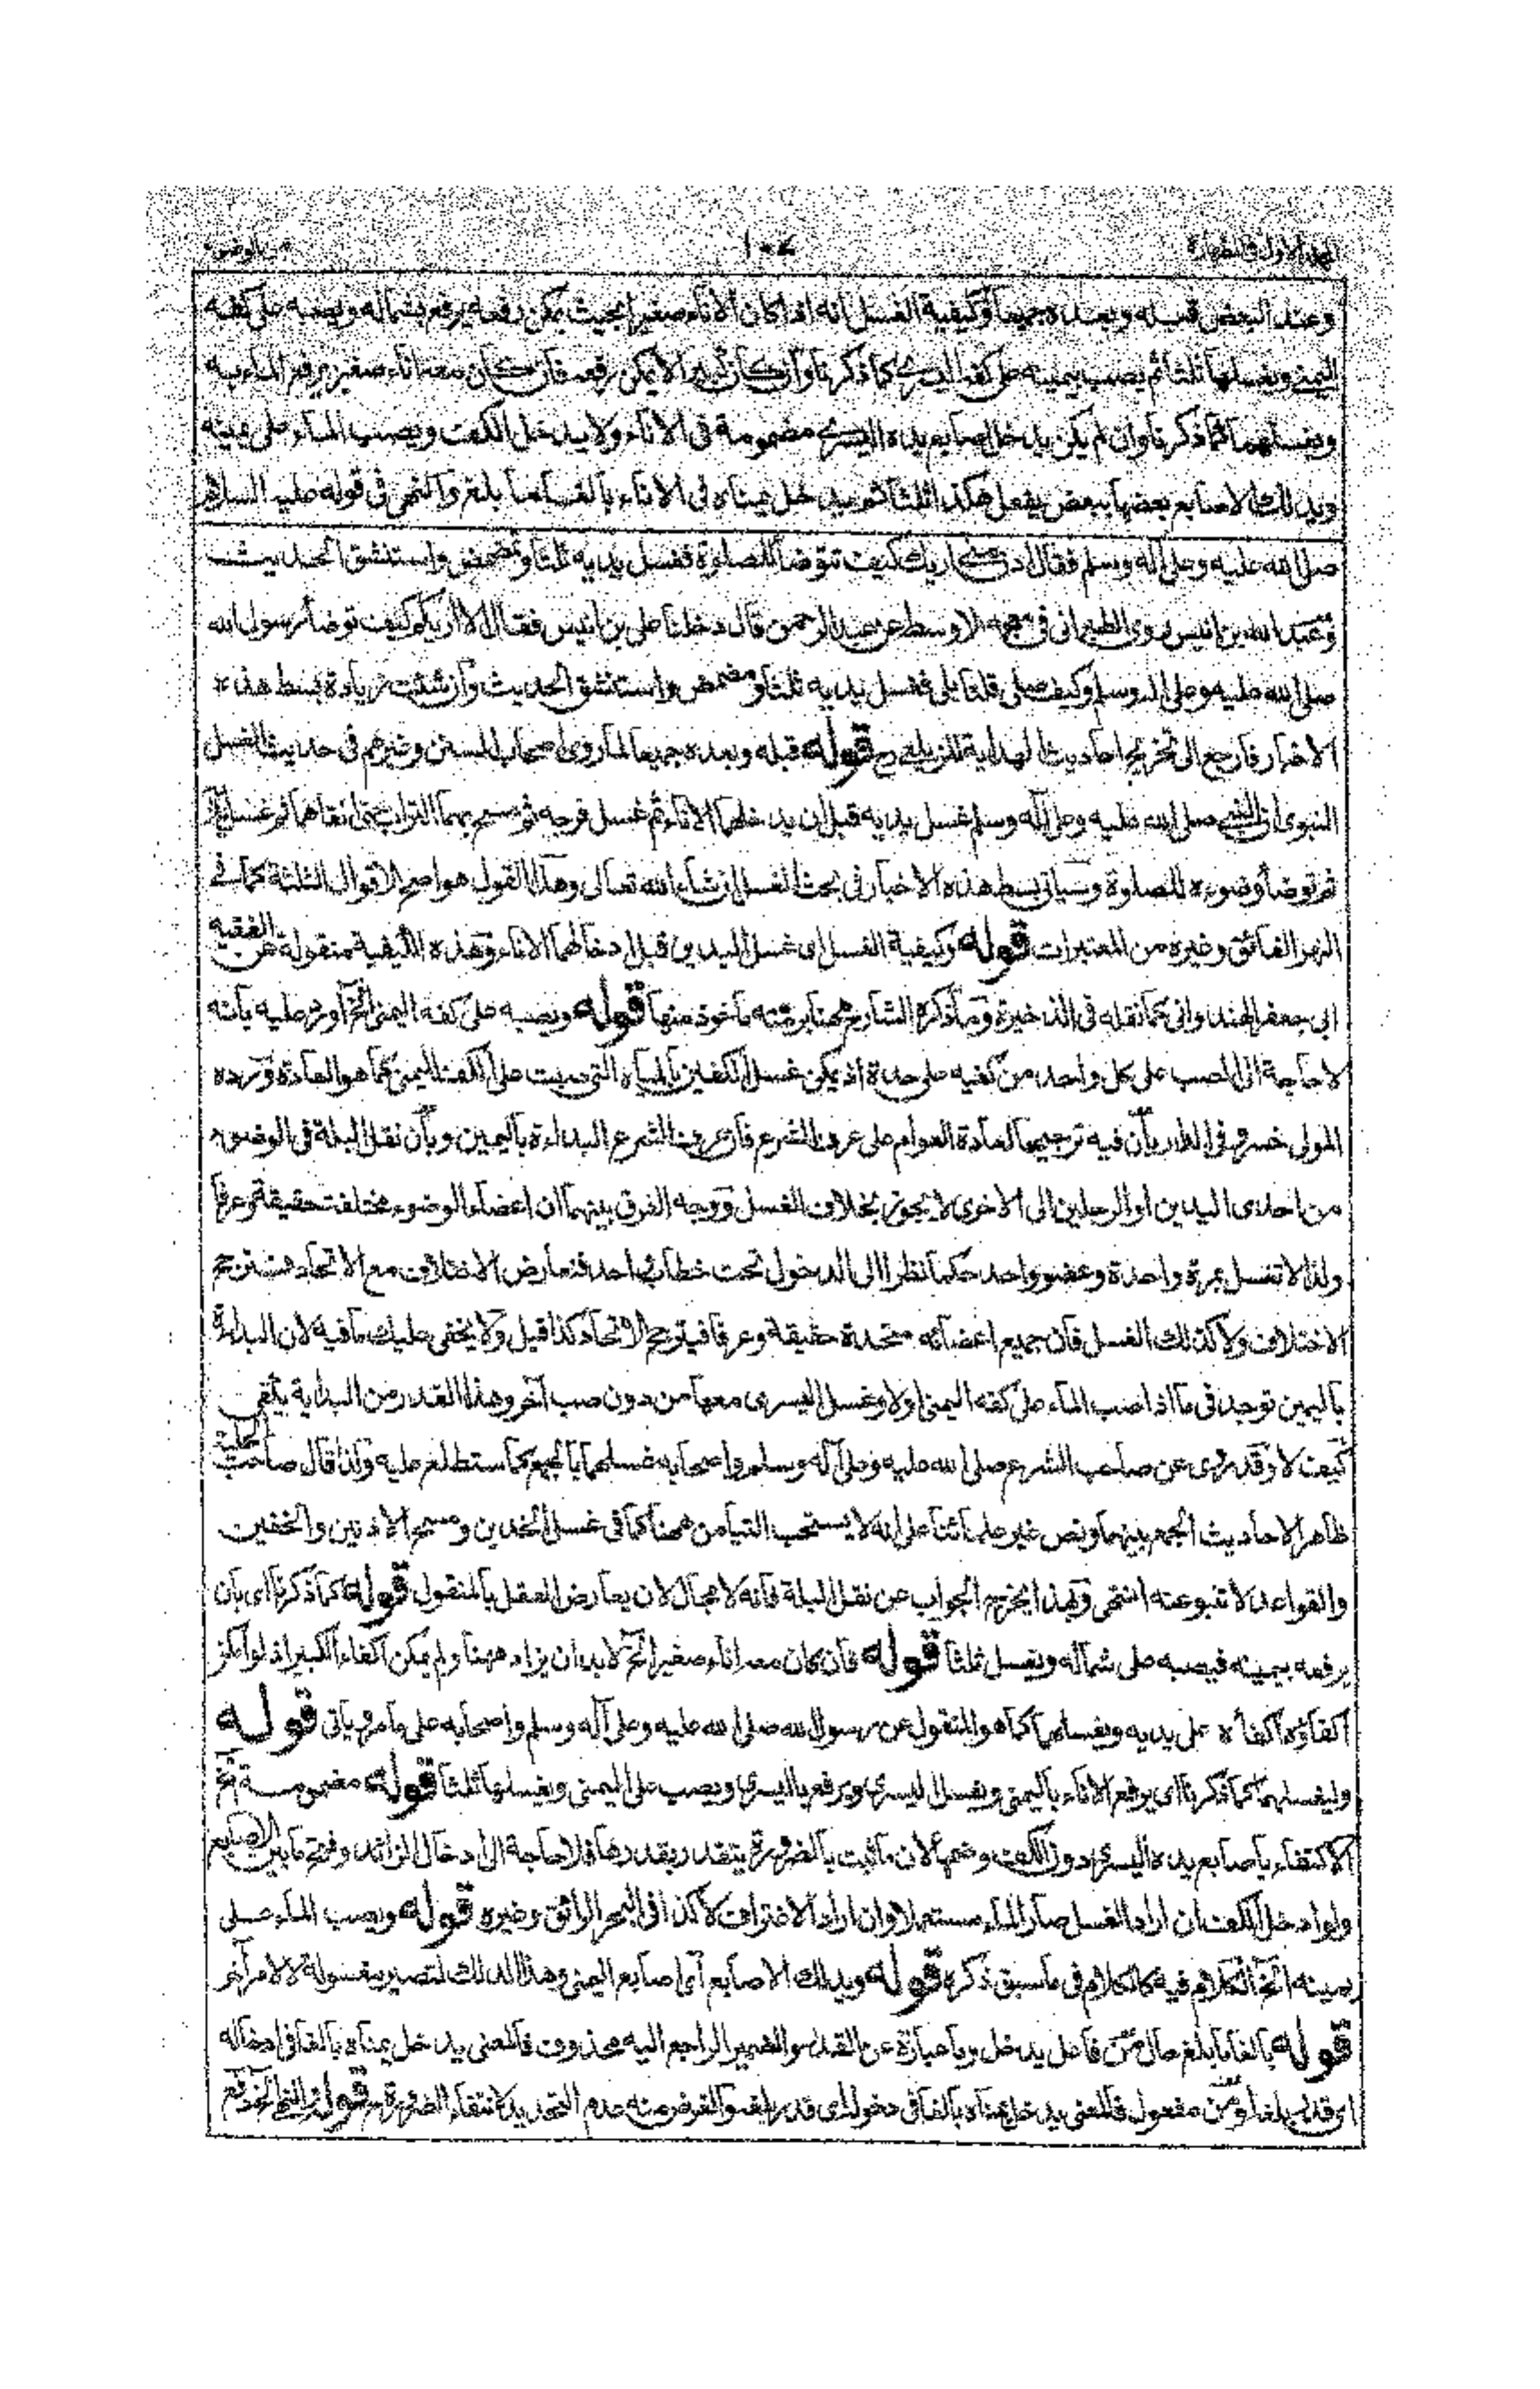 المجلد الاول فى الطهارة ١٠٧ سنن الوضوء
وعند البعض قبله وبعده جميعا وكيفية الغسل انه اذا كان الاناء صغيرا بحيث يمكن رفعه يرفع بشماله ويصبه على كفه
اليمنى ويغسلها ثلثا ثم يصب بيمينه على كفه اليسرى كما ذكرنا وان كان كبيرا لا يمكن رفعه فان كان معه اناء صغير يرفع الماء به
ويغسلهما كما ذكرنا وان لم يكن يدخل اصابع يده اليسرى مضمومة فى الاناء ولا يدخل الكف ويصب الماء على يمينه
ويدلك الاصابع بعضها ببعض يفعل هكذا ثلثا ثم يدخل يمناه فى الاناء بالغا ما بلغ والنهى فى قوله عليه السلام
صلى الله عليه وعلى اله وسلم فقال ادن منى اريك كيف تتوضأ للصلوة فغسل يديه ثلثا وتمضمض واستنشق الحديث
وعبد الله بن انيس روى الطبرانى فى معجمه الاوسط عن عبد الرحمن قال دخلنا على بن انيس فقال الا اريكم كيف توضأ رسول الله
صلى الله عليه وعلى اله وسلم وكيف صلى قلنا بلى فغسل يديه ثلثا ومضمض واستنشق الحديث وان شئت زيادة بسط هذه
الاخبار فارجع الى تخريج احاديث الهداية للزيلعى قوله قبله وبعده جميعا لما روى اصحاب السنن وغيرهم فى حديث الغسل
النبوى ان النبى صلى الله عليه وعلى آله وسلم غسل يديه قبل ان يدخلهما الاناء ثم غسل فرجه ثم مسح بهما التراب حتى انقاهما ثم غسل
ثم توضأ وضوءه للصلوة وسياتى بسط هذه الاخبار فى بحث الغسل ان شاء الله تعالى وهذا القول هو اصح الاقوال الثلثة كما فى
النهر الفائق وغيره من المعتبرات قوله وكيفية الغسل اى غسل اليدين قبل ادخالهما الاناء وهذه الكيفية منقولة عن الفقيه
ابى جعفر الهندوانى كما نقله فى الذخيرة وما ذكره الشارح ههنا برمته ماخوذ منها قوله ويصبه على كفه اليمنى الخ اورد عليه بانه
لا حاجة الى الصب على كل واحد من كفيه على حدة اذ يمكن غسل الكفين بالمياه التى صبت على الكف اليمنى كما هو العادة ورده
المولى خسرو فى الدرر بان فيه ترجيحا لعادة العوام على عرف الشرع فان عرف الشرع البداءة باليمين وبان نقل البلة فى الوضوء
من احدى اليدين او الرجلين الى الاخرى لا يجوز بخلاف الغسل ووجه الفرق بينهما ان اعضاء الوضوء مختلفة حقيقة وعرفا
ولذا لا تغسل بمرة واحدة وعضو واحد حكما نظرا الى الدخول تحت خطاب واحد فتعارض الاختلاف مع الاتحاد فترجح
الاختلاف ولا كذلك الغسل فان جميع اعضائه متحدة حقيقة وعرفا فيترجح الاتحاد كذا قيل ولا يخفى عليك ما فيه لان البداءة
باليمين توجد فى ما اذا صب الماء على كفه اليمنى اولا وغسل اليسرى معها من دون صب آخر وهذا القدر من البداية يكفى
كيف لا وقد روى عن صاحب الشرع صلى الله عليه وعلى آله وسلم واصحابه غسلهما بالجمع كما ستطلع عليه ولذا قال صاحب الحلية
ظاهر الاحاديث الجمع بينهما ونص غير علمائنا على انه لا يستحب التيامن ههنا كما فى غسل الخدين ومسح الاذنين والخفين
والقواعد لا تنبو عنه انتهى وبهذا يخرج الجواب عن نقل البلة فانه لا مجال لان يعارض العقل بالمنقول قوله كما ذكرنا اى بان
يرفعه بيمينه فيصبه على شماله ويغسل ثلثا قوله فان كان معه اناء صغير الخ لا بد ان يزاد ههنا ولم يمكن اكفاء الكبير اذ لو امكن
اكفاؤه اكفأه على يديه ويغسلهما كما هو المنقول عن رسول الله صلى الله عليه وعلى آله وسلم واصحابه على ما مر وياتى قوله
وليغسلهما كما ذكرنا اى يرفع الاناء باليمنى ويغسل اليسرى ويرفع باليسرى ويصب على اليمنى ويغسلها ثلثا قوله مضمومة الخ
الاكتفاء باصابع يده اليسرى دون الكف وضمها لان ما ثبت بالضرورة يتقدر بقدرها فلا حاجة الى ادخال الزائد وفتح ما بين الاصابع
ولو ادخل الكف ان اراد الغسل صار الماء مستعملا وان اراد الاغتراف لا كذا فى البحر الرائق وغيره قوله ويصب الماء على
يمينه الخ الكلام فيه كالكلام فى ما سبق ذكره قوله ويدلك الاصابع اى اصابع اليمنى وهذا الدلك لتصير مغسولة لا لامر آخر
قوله بالغا ما بلغ حال من فاعل يدخل وما عبارة عن القدر والضمير الراجع اليه محذوف فالمعنى يدخل يمناه بالغا فى ادخاله
اى قدر بلغ او من مفعوله فالمعنى يدخل يمناه بالغا فى دخوله اى قدر بلغ والغرض منه عدم التحديد لانتفاء الضرورة قوله والنهى الخ دفع